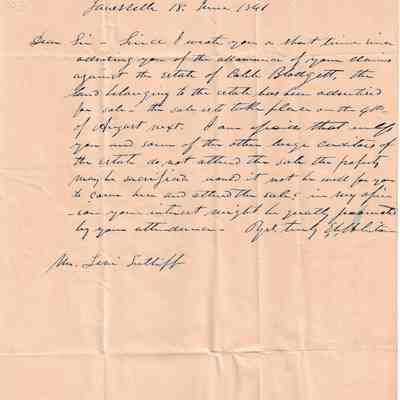 Janesville 18. June 1841
Dear Sir - Since I wrote you a short time since
advising you of the allowance of your claims
against the estate of Caleb Blodgett, the
land belonging to the estate has been advertised
for sale - the sale is to take place on the 9th
of August next. I am afraid that unless
you and some of the other large creditors of
the estate do not attend the sale the property
may be sacrificed would it not be well for you
to come here and attend the sale; in my opin-
-ion your interest might be greatly promoted
by your attendance - Yrs truly
Mr. Levi Sutliff